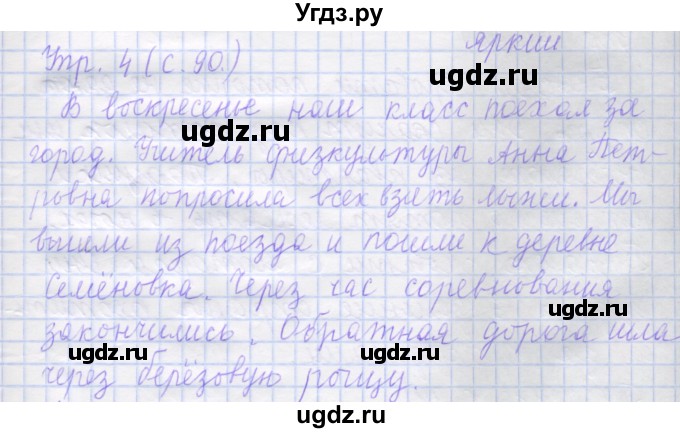 Угдз.ру
яркий
Упр. 4 (с. 90.)
ugdz.ru
В воскресенье наш класс поехал за
ugdz.ru
ugdz.ru
город. Учитель физкультуры Анна Пет-
ровна попросила всех взять лыжи. Мы
вышли из поезда и пошли к деревне
Семёновка. Через час соревнования
закончились. Обратная дорога шла
ugdz.ru
ugdz.ru
через берёзовую рощу.
ugdz.ru